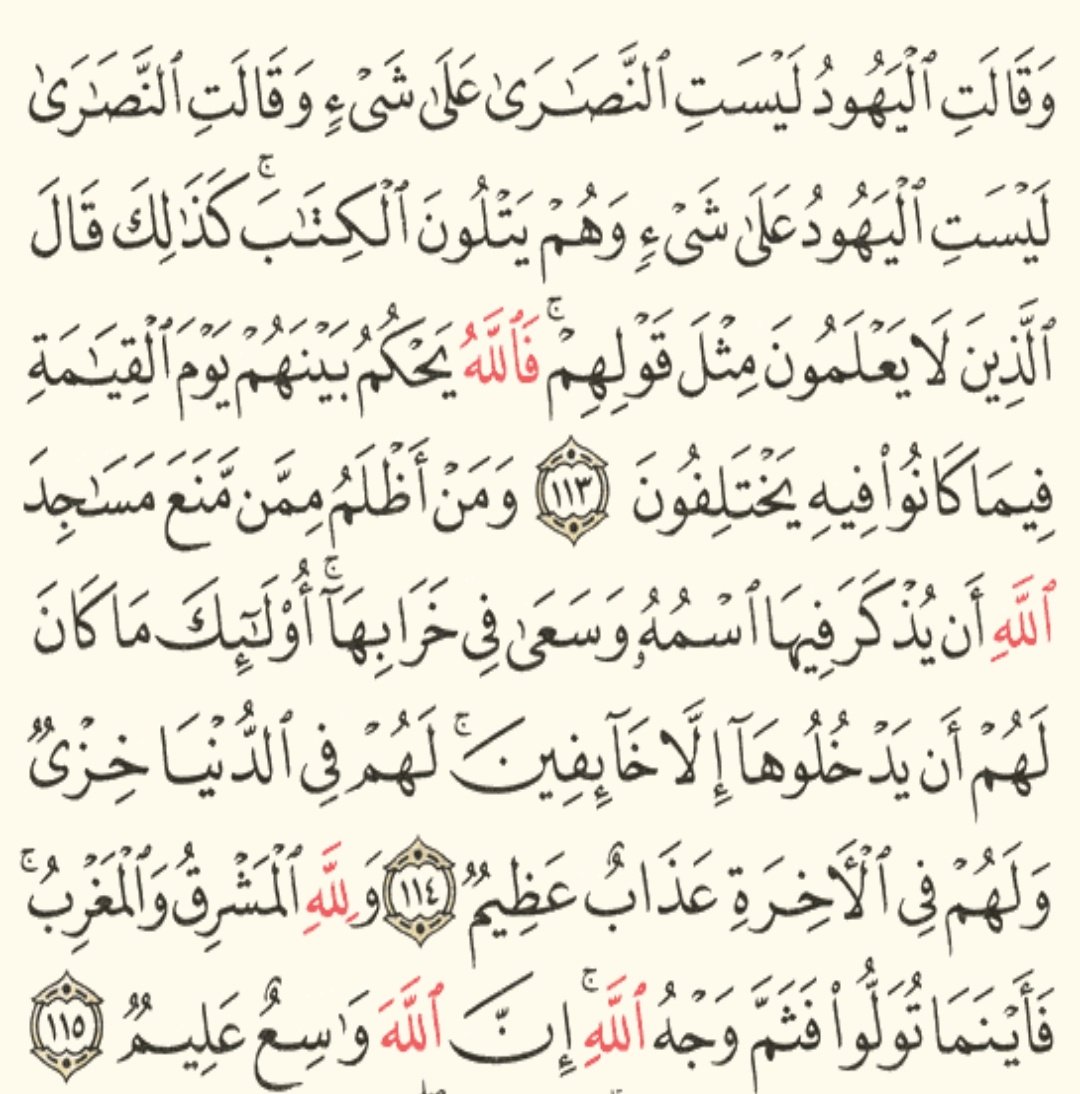 وَقَالَتِ ٱلْيَهُودُ لَيْسَتِ ٱلنَّصَـٰرَىٰ عَلَىٰ شَىْءٍ وَقَالَتِ ٱلنَّصَـٰرَىٰ
لَيْسَتِ ٱلْيَهُودُ عَلَىٰ شَىْءٍ وَهُمْ يَتْلُونَ ٱلْكِتَـٰبَ ۚ كَذَٰلِكَ قَالَ
ٱلَّذِينَ لَا يَعْلَمُونَ مِثْلَ قَوْلِهِمْ ۚ فَٱللَّهُ يَحْكُمُ بَيْنَهُمْ يَوْمَ ٱلْقِيَـٰمَةِ
فِيمَا كَانُوا۟ فِيهِ يَخْتَلِفُونَ ١١٣ وَمَنْ أَظْلَمُ مِمَّن مَّنَعَ مَسَـٰجِدَ
ٱللَّهِ أَن يُذْكَرَ فِيهَا ٱسْمُهُۥ وَسَعَىٰ فِى خَرَابِهَآ ۚ أُو۟لَـٰٓئِكَ مَا كَانَ
لَهُمْ أَن يَدْخُلُوهَآ إِلَّا خَآئِفِينَ ۚ لَهُمْ فِى ٱلدُّنْيَا خِزْىٌ
وَلَهُمْ فِى ٱلْـَٔاخِرَةِ عَذَابٌ عَظِيمٌ ١١٤ وَلِلَّهِ ٱلْمَشْرِقُ وَٱلْمَغْرِبُ ۚ
فَأَيْنَمَا تُوَلُّوا۟ فَثَمَّ وَجْهُ ٱللَّهِ ۚ إِنَّ ٱللَّهَ وَٰسِعٌ عَلِيمٌ ١١٥